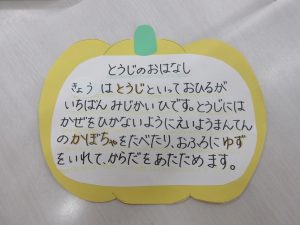 とうじのおはなし
きょう はとうじといっておひるが
いちばん みじかいひです。とうじには
かぜをひかないようにえいようまんてん
のかぼちゃをたべたり、おふろにゆず
をいれて、からだをあたためます。